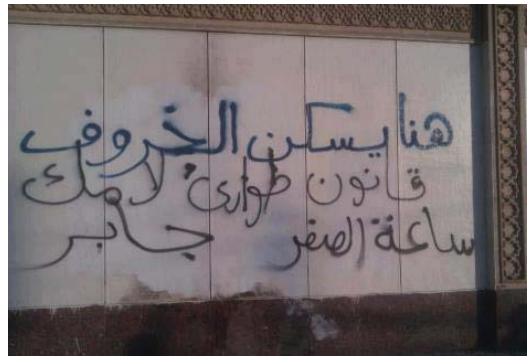 هنا يسكن الخروف
قانون طوارئ لامك
ساعة الصفر جابر